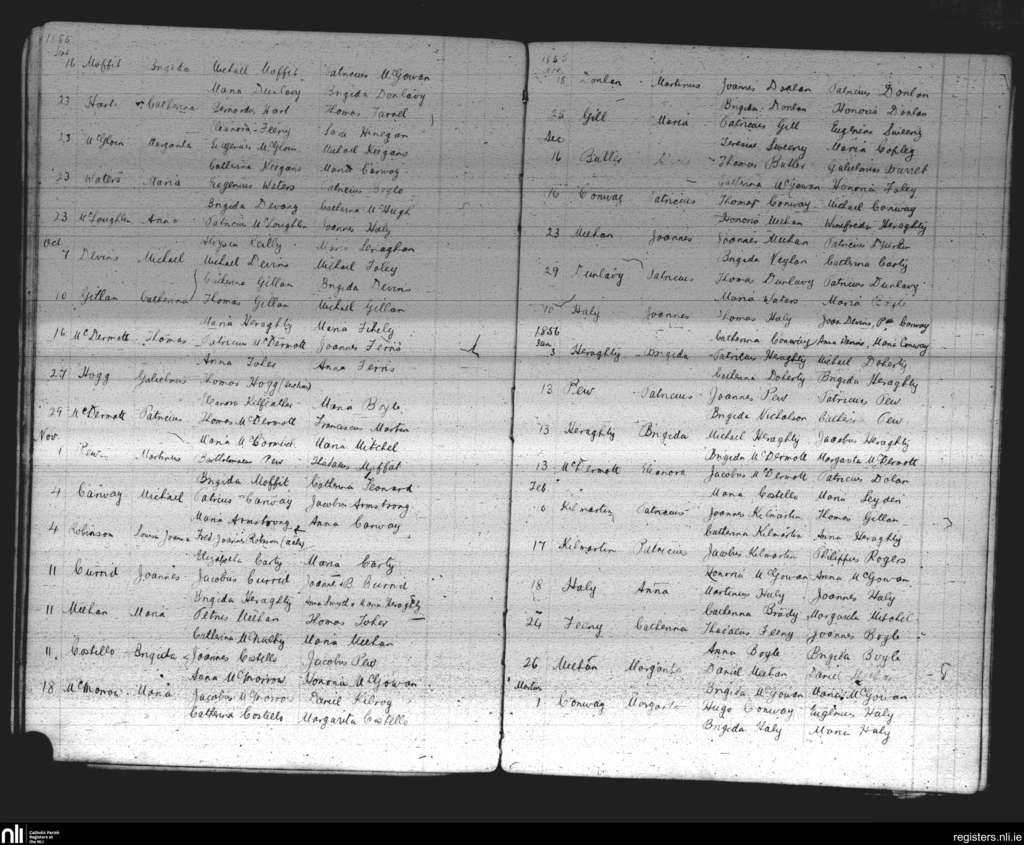 1855
16 Moffit Brigida Michael Moffit Patricius McGowan
Maria Dunlavy Brigida Donlavy
23 Hart Catherina Bernardus Hart Thomas Farrel
Eleanora Feeny Sara Finegan
23 McGloin Margarita Eugenius McGloin Michael Keegans
Catherina Keegans Maria Carway
23 Waters Maria Eugenius Waters Patricius Boyle
Brigida Devany Catherina McHugh
23 McLoughlin Anna Patricius McLoughlin Joannes Haly
Kelly Maria Geraghan
Oct
7 Devins Michael Michael Devins Michael Foley
Catherina Gillan Brigida Devins
10 Gillan Catherina Thomas Gillan Michael Gillan
Maria Heraghty Maria Fehely
16 McDermott Thomas Patricius McDermott Joannes Ferns
Anna Toher Anna Ferns
27 Hogg Gulielmus Thomas Hogg
Eleanora Kilfeather Maria Boyle
29 McDermott Patricius Thomas McDermott Franciscus Martin
Maria McCormick Maria Mitchel
Nov
1 Pew Martinus Bartholomaeus Pew Thadaeus Moffat
Brigida Moffit Catherina Leonard
4 Carway Michael Patricius Carway Jacobus Armstrong
Maria Armstrong Anna Carway
4 Robinson Joanna Fred. Joannes
Elizabeth Carty Maria Carty
11 Currid Joannes Jacobus Currid Joannes B Currid
Brigida Heraghty Anna Smyth & Maria Heraghty
11 Meehan Maria Petrus Meehan Thomas Toher
Catherina McNulty Maria Meehan
11. Costello Brigida Joannes Costello Jacobus Pew
Anna McMorrow Honoria McGowan
18 McMorrow Maria Jacobus McMorrow Daniel Kilrog
Catherina Costello Margarita Costello
1855
Nov
18 Donlan Martinus Joannes Donlan Patricius Donlan
Brigida Donlan Honoria Donlan
25 Gill Maria Patricius Gill Eugenius Sweeny
Teresia Sweeny Maria Copley
Dec
16 Butler Thomas Butler Gulielmus Barret
Catherina McGowan Honoria Foley
16 Conway Patricius Thomas Conway Michael Conway
Honoria Meehan Winifreda Heraghty
23 Meehan Joannes Joannes Meehan Patricius Durkin
Brigida Neylan Catherina Carty
29 Dunlavy Patricius Thomas Dunlavy Patricius Dunlavy
Maria Waters Maria Boyle
Haly Joannes Thomas Haly Joan Devins, Pat Conway
Catherina Conway Anna Devins, Maria Conway
1856
Jan
3 Heraghty Brigida Patricius Heraghty Michael Doherty
Catherina Doherty Brigida Heraghty
13 Pew Patricius Joannes Pew Patricius Pew
Brigida Nicholson Pew
13 Heraghty Brigida Michael Heraghty Jacobus Heraghty
Brigida McDermott Margarita McDermott
13 McDermott Eleanora Jacobus McDermott Patricius Dolan
Maria Costello Maria Leyden
Feb
6 Kilmartin Patricius Joannes Kilmartin Thomas Gillan
Catherina Kilmartin Anna Heraghty
17 Kilmartin Patricius Jacobus Kilmartin Philippus Rogers
Honoria McGowan Anna McGowan
18 Haly Anna Martinus Haly Joannes Haly
Catherina Brady Margarita Mitchel
24 Feeny Catherina Thadaeus Feeny Joannes Boyle
Anna Boyle Brigida Boyle
26 Meehan Margarita Daniel Meehan Daniel
Brigida McGowan Maria McGowan
Martius
1 Conway Margarita Hugo Conway Eugenius Haly
Brigida Haly Maria Haly
nli Catholic Parish
Registers at
the NLI
registers.nli.ie